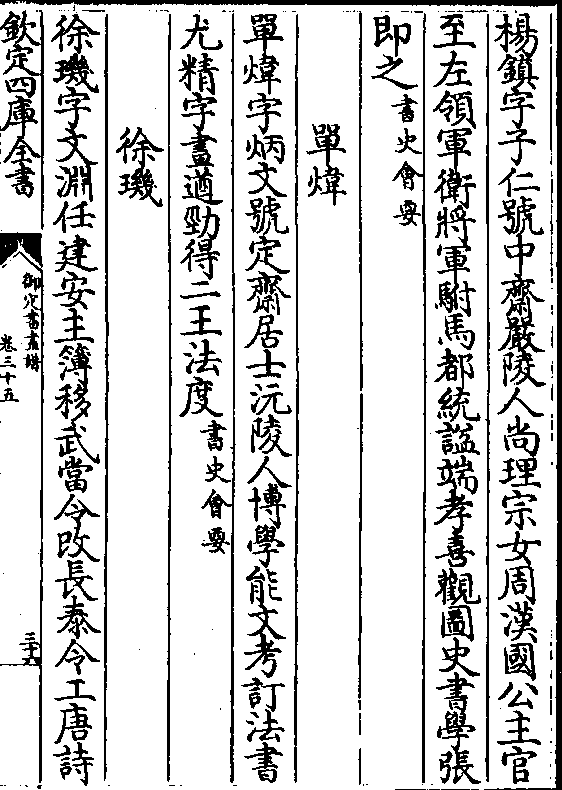 楊鎮字子仁號中齋嚴陵人尚理宗女周漢國公主官
至左領軍衛將軍駙馬都統謚端孝喜觀圖史書學張
即之書史會要
單煒
單煒字炳文號定齋居士沅陵人博學能文考訂法書
尤精字畫遒勁得二王法度書史會要
徐璣
徐璣字文淵任建安主簿移武當令改長泰令工唐詩
欽定四庫全書
御定書畫譜
卷三十五
三十六